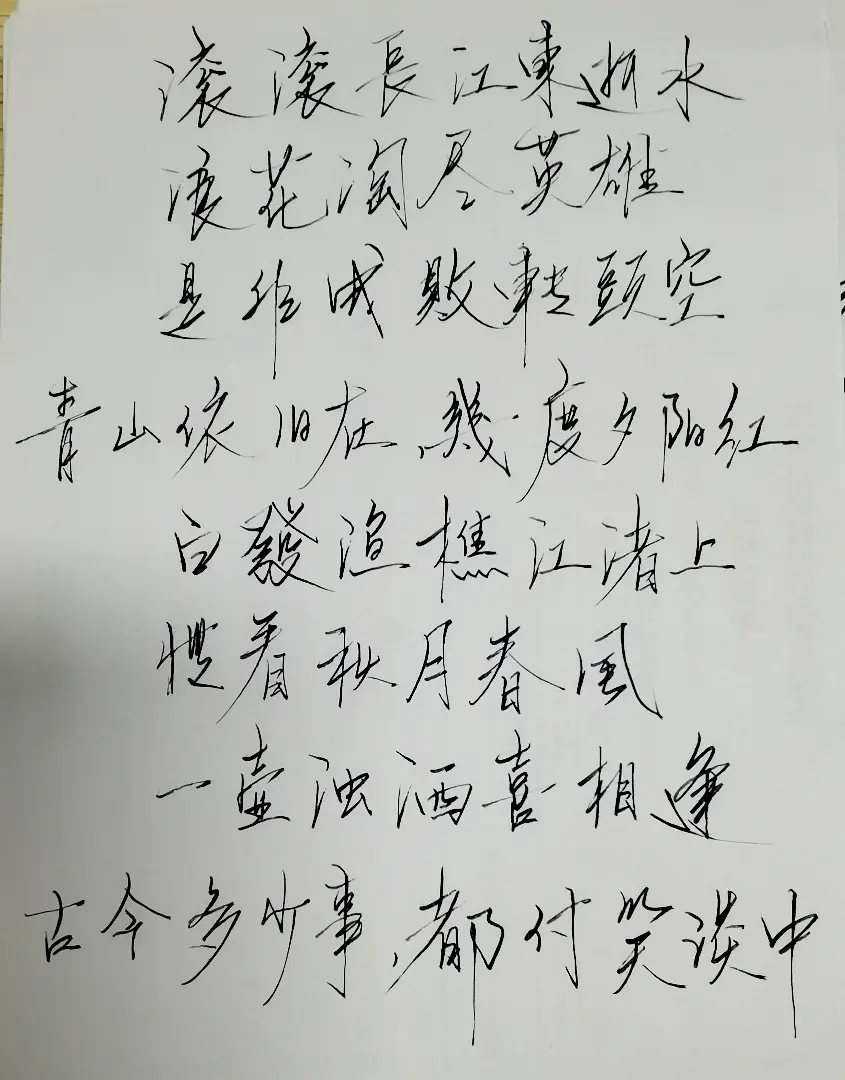 滚滚長江東逝水
浪花淘尽英雄
是非成敗轉頭空
青山依旧在,幾度夕阳红
白發渔樵江渚上
惯看秋月春风
一壶浊酒喜相逢
古今多少事,都付笑谈中